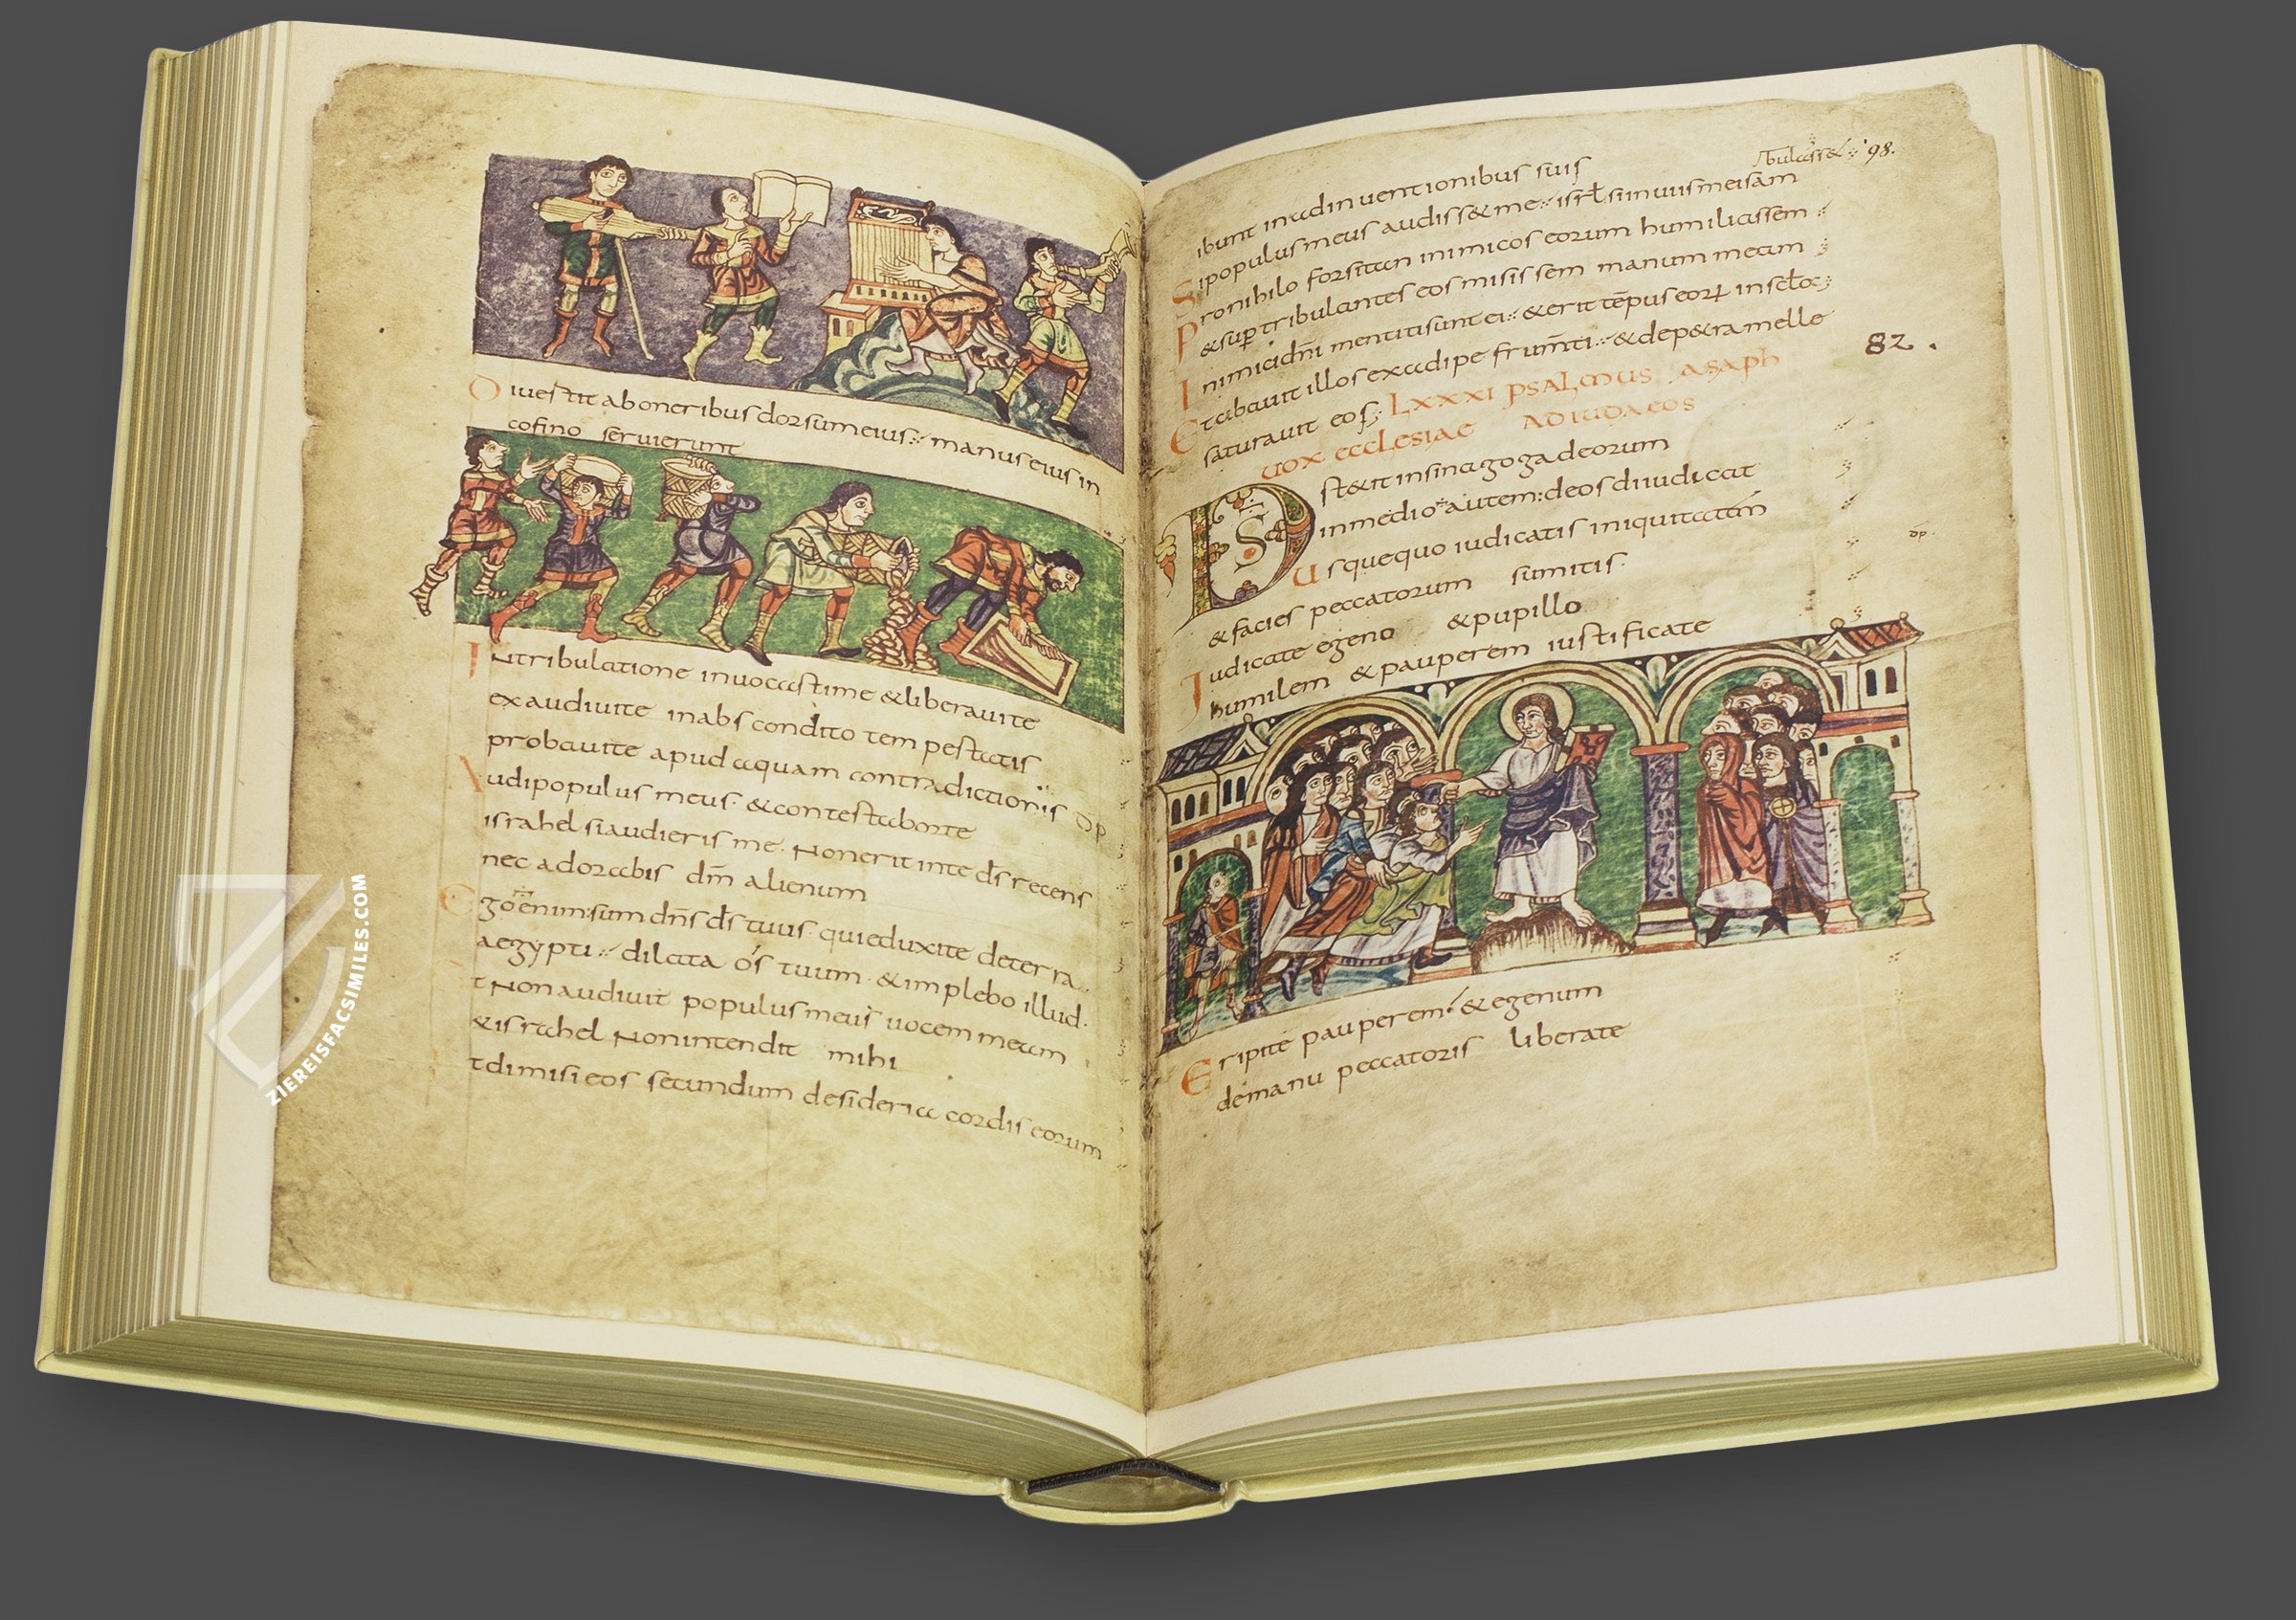 Diuertit ab oneribus dorsum eius·: manus eius in
cofino seruierunt
In tribulatione inuocastime & liberauite
exaudiuite inabscondito tempestatis
probauite apud aquam contradictionis dp
Audi populus meus· & contestaborte
israhel si audieris me· Non erit inte ds̄ recens
nec adorabis dm̄ alienum
Ego enim:sum dn̄s ds̄ tuus· qui eduxite deterra
aegypti·: dilata ós tuum· & implebo illud·
t Non audiuit populus meus uocem meam
& israhel Non intendit mihi
t dimisi eos secundum desideria cordis eorum
ZIEREISFACSIMILES.COM
98.
ibunt in adinuentionibus suis
Si populus meus audiss& me·: isrl̄ si in uiis meis am
Pro nihilo forsitan inimicos eorum humiliassem
& sup̄ tribulantes eos misissem manum meam
Inimici dn̄i mentiti sunt ei·: & erit tēpus eoꝝ in sc̄lo
Et cibauit illos ex adipe frum̄ti·: & de p&ra melle
saturauit eos; LXXXI PSALMUS ASAPH
82.
UOX ECCLESIAE AD IUDAEOS
DS st&it in sinagoga deorum
in medio autem: deos diiudicat
Usquequo iudicatis iniquitatem
dp·
& facies peccatorum sumitis·
Iudicate egeno & pupillo
humilem & pauperem iustificate
Eripite pauperem: & egenum
de manu peccatoris liberate